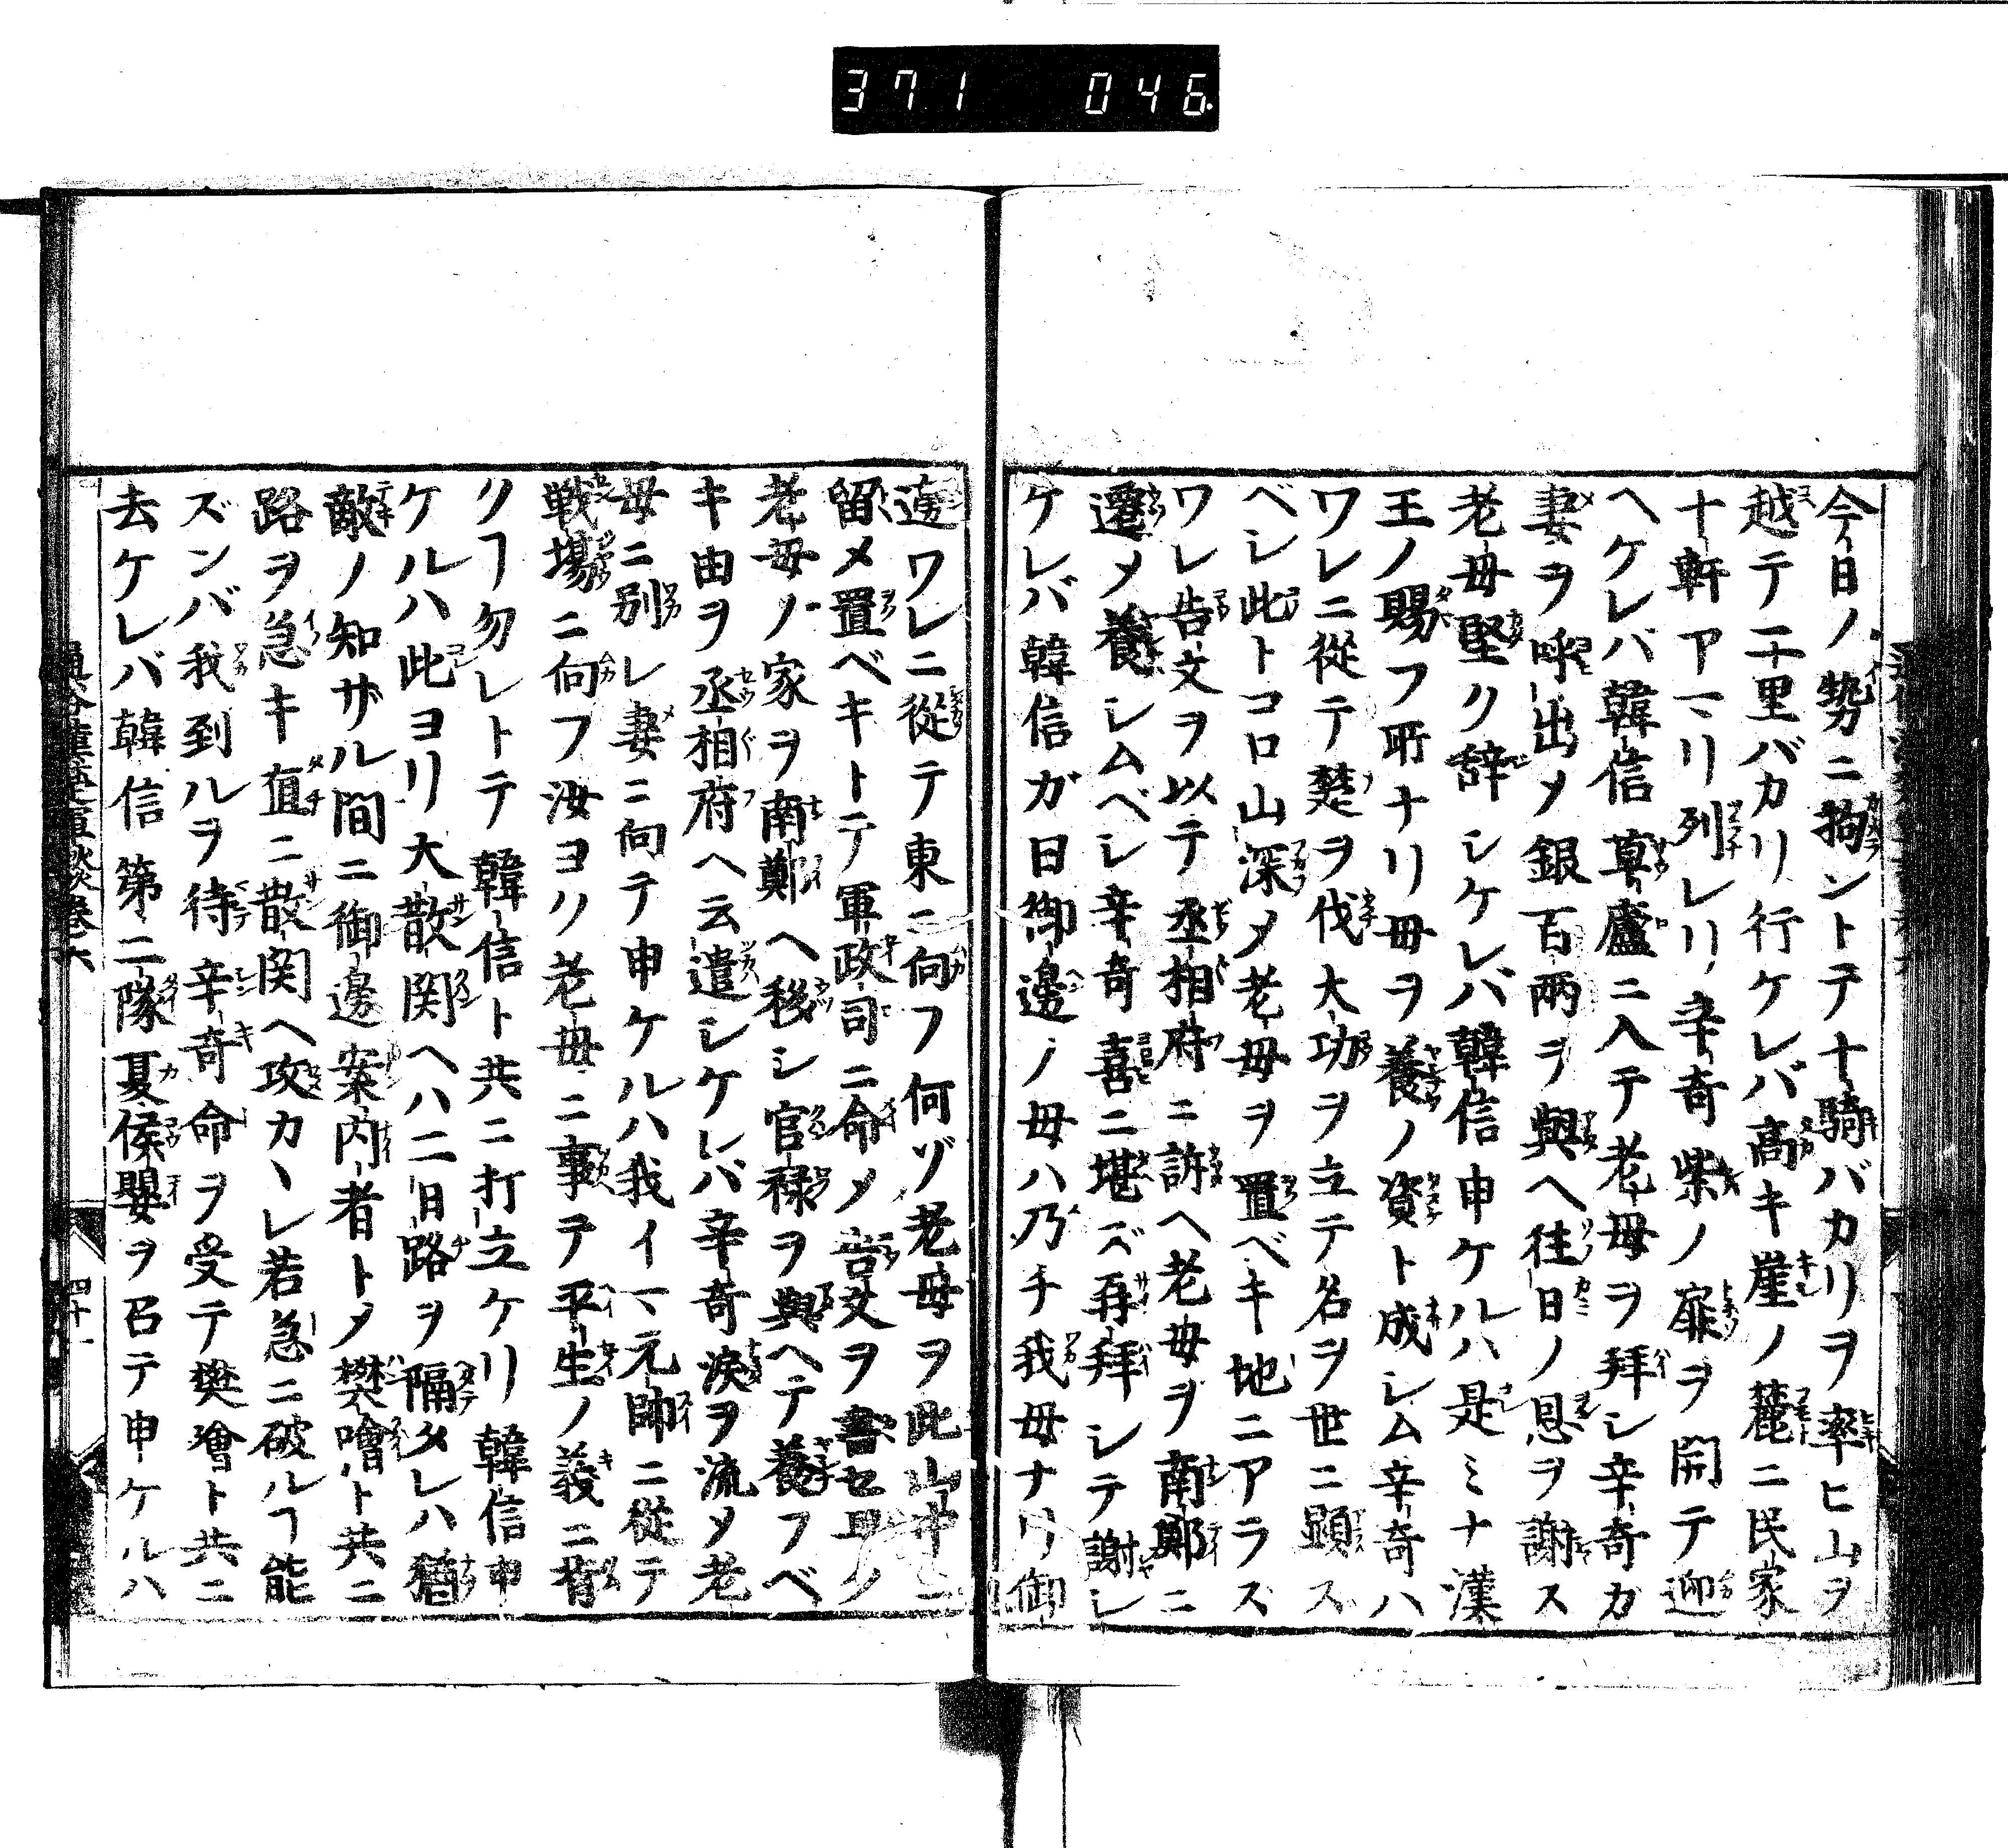 371 046
今日ノ勢ニ拘ントテ十騎バカリヲ率ヒ山ヲ
越テ二十里バカリ行ケレバ高キ崖ノ麓ニ民家
十軒アマリ列レリ辛奇柴ノ扉ヲ開テ迎
ヘケレバ韓信草廬ニ入テ老母ヲ拜シ辛奇ガ
妻ヲ呼出メ銀百兩ヲ與ヘ徃日ノ恩ヲ謝ス
老母堅ク辞シケレバ韓信申ケルハ是ミナ漢
王ノ賜フ所ナリ毋ヲ養ノ資ト成シム辛奇ハ
ワレニ從テ楚ヲ伐大功ヲ立テ名ヲ世ニ顕ス
ベシ此トコロ山深メ老母ヲ置ベキ地ニアラズ
ワレ告文ヲ以テ丞相府ニ訴ヘ老毋ヲ南鄭ニ
遷メ養シムベシ辛奇喜ニ堪ズ再拜シテ謝シ
ケレバ韓信ガ曰御邊ノ母ハ乃チ我母ナリ御
邊ワレニ從テ東ニ向フ何ゾ老母ヲ此山中ニ
留メ置ベキトテ軍政司ニ命メ告文ヲ書セ
老毋ノ家ヲ南鄭ヘ移シ官禄ヲ與ヘテ養フベ
キ由ヲ丞相府ヘ云遣シケレバ辛奇涙ヲ流メ老
毋ニ別レ妻ニ向テ申ケルハ我イマ元帥ニ從テ
戦場ニ向フ汝ヨク老毋ニ事テ平生ノ義ニ背
クヿ勿レトテ韓信ト共ニ打立ケリ韓信申
ケルハ此ヨリ大散関ヘハ二日路ヲ隔タレハ猶
敵ノ知ザル間ニ御邊案内者トメ樊噲ト共ニ
路ヲ急キ直ニ散関ヘ攻カヽレ若急ニ破ルヿ能
ズンバ我到ルヲ待辛奇命ヲ受テ樊噲ト共ニ
去ケレバ韓信第二隊夏侯嬰ヲ召テ申ケルハ
四十一